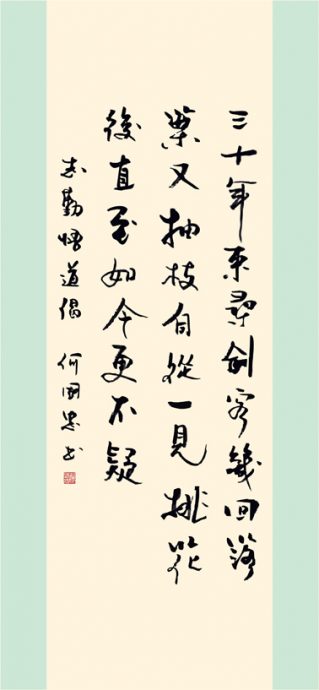 三十年來尋劍客幾回落
葉又抽枝自從一見桃花
後直至如今更不疑
志勤悟道偈 何國忠書